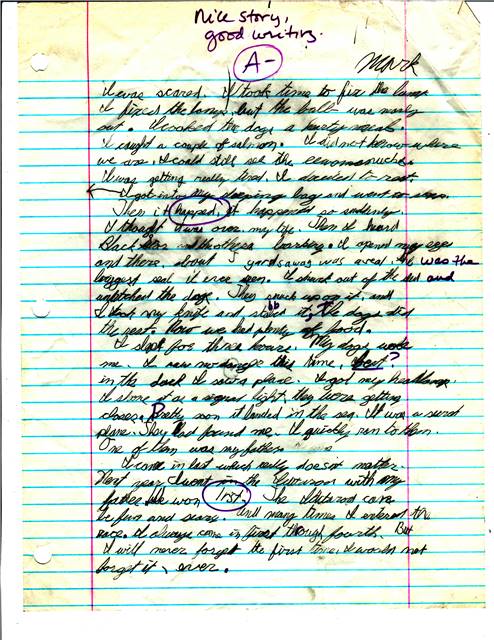 Nice story,
good writing.
A-
Mark
I was scared. I took time to fix the lamp
I fixed the lamp but the was nearly
out. I cooked the dogs a meal.
I caught a couple of salmon. I did not know where
we are. I could still see the
I was getting really tired. I decided to rest.
I got into my sleeping bag and went to
Then it happened, it happened so suddenly
I thought it was over my life. Then I heard
Black barking. I opened my eyes
and there about 5 yards away was a seal. He was the
biggest seal I ever seen. I shuck out of the sled and
unhitched the dogs. They snuck upon it, and
I took my knife and stabbed it, the dogs did
the rest. Now we had plenty of food.
I slept for three hours. My dogs woke
me. I saw no danger this time, but?
in the dark I saw a plane. I got my headlamp
I shone it as a signal light. they were getting
closer. Pretty soon it landed in the sea. It was a
plane. They had found me. I quickly run to them.
One of them was my father.
I came in last which really doesn't matter.
Next year I went in the with my
father. We won first. The Iditarod can
be fun and scary. And many times I entered the
race. I always come in first through fourth. But
I will never forget the first time. I would not
forget it, ever.